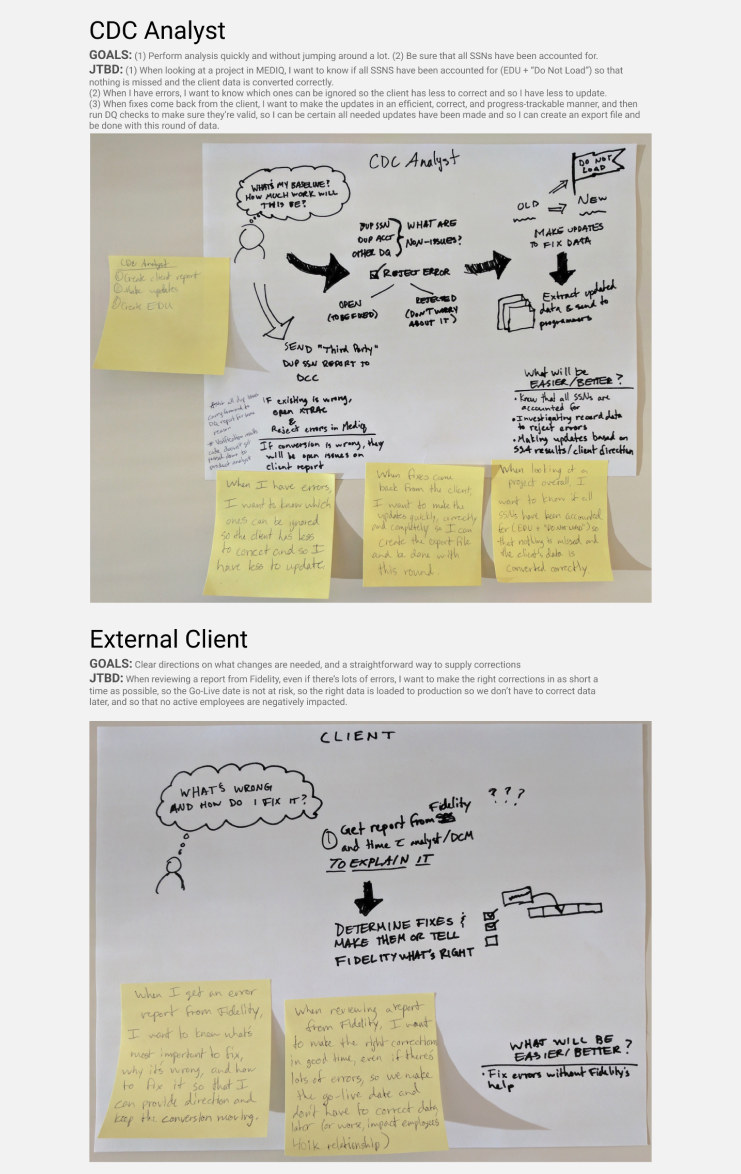 CDC Analyst
GOALS: (1) Perform analysis quickly and without jumping around a lot. (2) Be sure that all SSNs have been accounted for.
JTBD: (1) When looking at a project in MEDIQ, I want to know if all SSNS have been accounted for (EDU + “Do Not Load”) so that
nothing is missed and the client data is converted correctly.
(2) When I have errors, I want to know which ones can be ignored so the client has less to correct and so I have less to update.
(3) When fixes come back from the client, I want to make the updates in an efficient, correct, and progress-trackable manner, and then
run DQ checks to make sure they're valid, so I can be certain all needed updates have been made and so I can create an export file and
be done with this round of data.
CDC Analyst
WHAT'S MY BASELINE?
HOW MUCH WORK WILL
THIS BE?
DUP SSN
DUP ACCT
OTHER DQ
WHAT ARE
NON-ISSUES?
REJECT ERROR
OPEN
(TO BE FIXED)
REJECTED
(DON'T WORRY
ABOUT IT)
DO NOT
LOAD
OLD
NEW
MAKE UPDATES
TO FIX DATA
Extract updated
data & send to
programmers
CDC Analyst
① Create client report
② Make updates
Create EDU
SEND "Third Party"
DUP SSN REPORT TO
DCC
IF existing is wrong,
open XTRAC
&
Reject errors in Mediq
If conversion is wrong, they
will be open issues on
client report
What will be
EASIER/BETTER?
• Know that all SSNs are
accounted for
• Investigating record data
to reject errors
• Making updates based on
SSA results/client direction
When I have errors,
I want to know which
ones can be ignored
so the client has less
to correct and so I
have less to update
When fixes come
back from the client,
I want to make the
updates quickly, correctly
and completely so I can
create the export file
and be done with
this round.
When looking at a
project overall, I
want to know if all
SSNs have been accounted
for (EDU + "Do not load") so
that nothing is missed and
the client's data is
converted correctly.
External Client
GOALS: Clear directions on what changes are needed, and a straightforward way to supply corrections
JTBD: When reviewing a report from Fidelity, even if there's lots of errors, I want to make the right corrections in as short a
time as possible, so the Go-Live date is not at risk, so the right data is loaded to production so we don't have to correct data
later, and so that no active employees are negatively impacted.
CLIENT
WHAT'S WRONG
AND HOW DO I FIX IT?
Fidelity
① Get report from
and time c analyst/DCM
TO EXPLAIN IT
? ? ?
DETERMINE FIXES &
MAKE THEM OR TELL
FIDELITY WHAT'S RIGHT
When I get an error
report from Fidelity,
I want to know what's
most important to fix,
why it's wrong, and how
to fix it so that I
can provide direction and
keep the conversion moving.
When reviewing a report
from Fidelity, I want
to make the right correction
in good time, even if there's
lots of errors, so we make
the go-live date and
don't have to correct data
later (or worse, impact employees
401k relationship)
WHAT WILL BE
EASIER/BETTER?
• Fix errors without Fidelity's
help